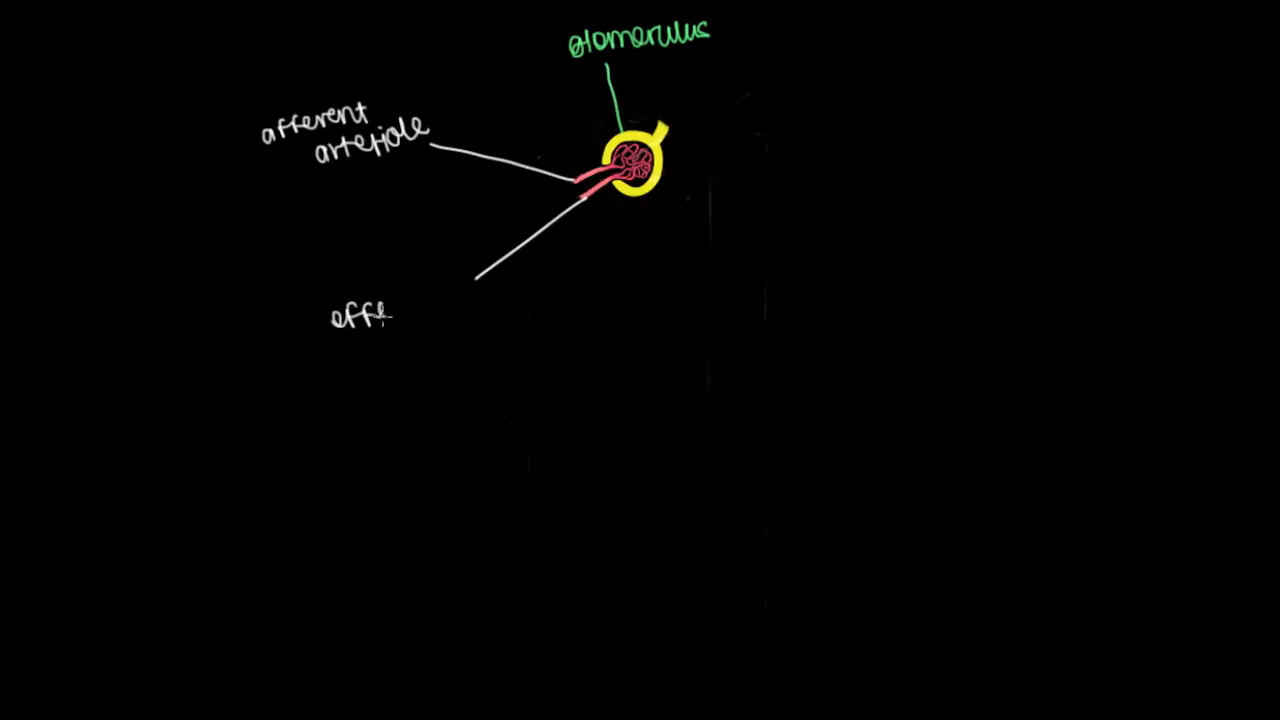 glomerulus
afferent
arteriole
effe